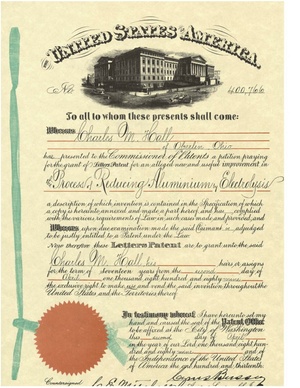 The United States of America.
No 400,766
To all to whom these presents shall come:
Whereas Charles M. Hall
of Oberlin Ohio
has presented to the Commissioner of Patents a petition praying
for the grant of Letters Patent for an alleged new and useful improvement in
Process of Reducing Aluminium by Electrolysis
a description of which invention is contained in the Specification of which
a copy is hereunto annexed and made a part hereof, and has complied
with the various requirements of Law in such cases made and provided, and
Whereas upon due examination made the said Claimant is adjudged
to be justly entitled to a Patent under the Law.
Now therefore these Letters Patent are to grant unto the said
Charles M. Hall, his heirs or assigns
for the term of seventeen years from the second day of
April one thousand eight hundred and eighty
the exclusive right to make, use and vend the said invention throughout the
United States and the Territories thereof.
In testimony whereof I have hereunto set my
hand and caused the seal of the Patent Office
to be affixed at the City of Washington
this second day of April
in the year of our Lord one thousand eight hun-
dred and eighty nine and of the
Independence of the United States of
America the one hundred and thirteenth.
Countersigned: